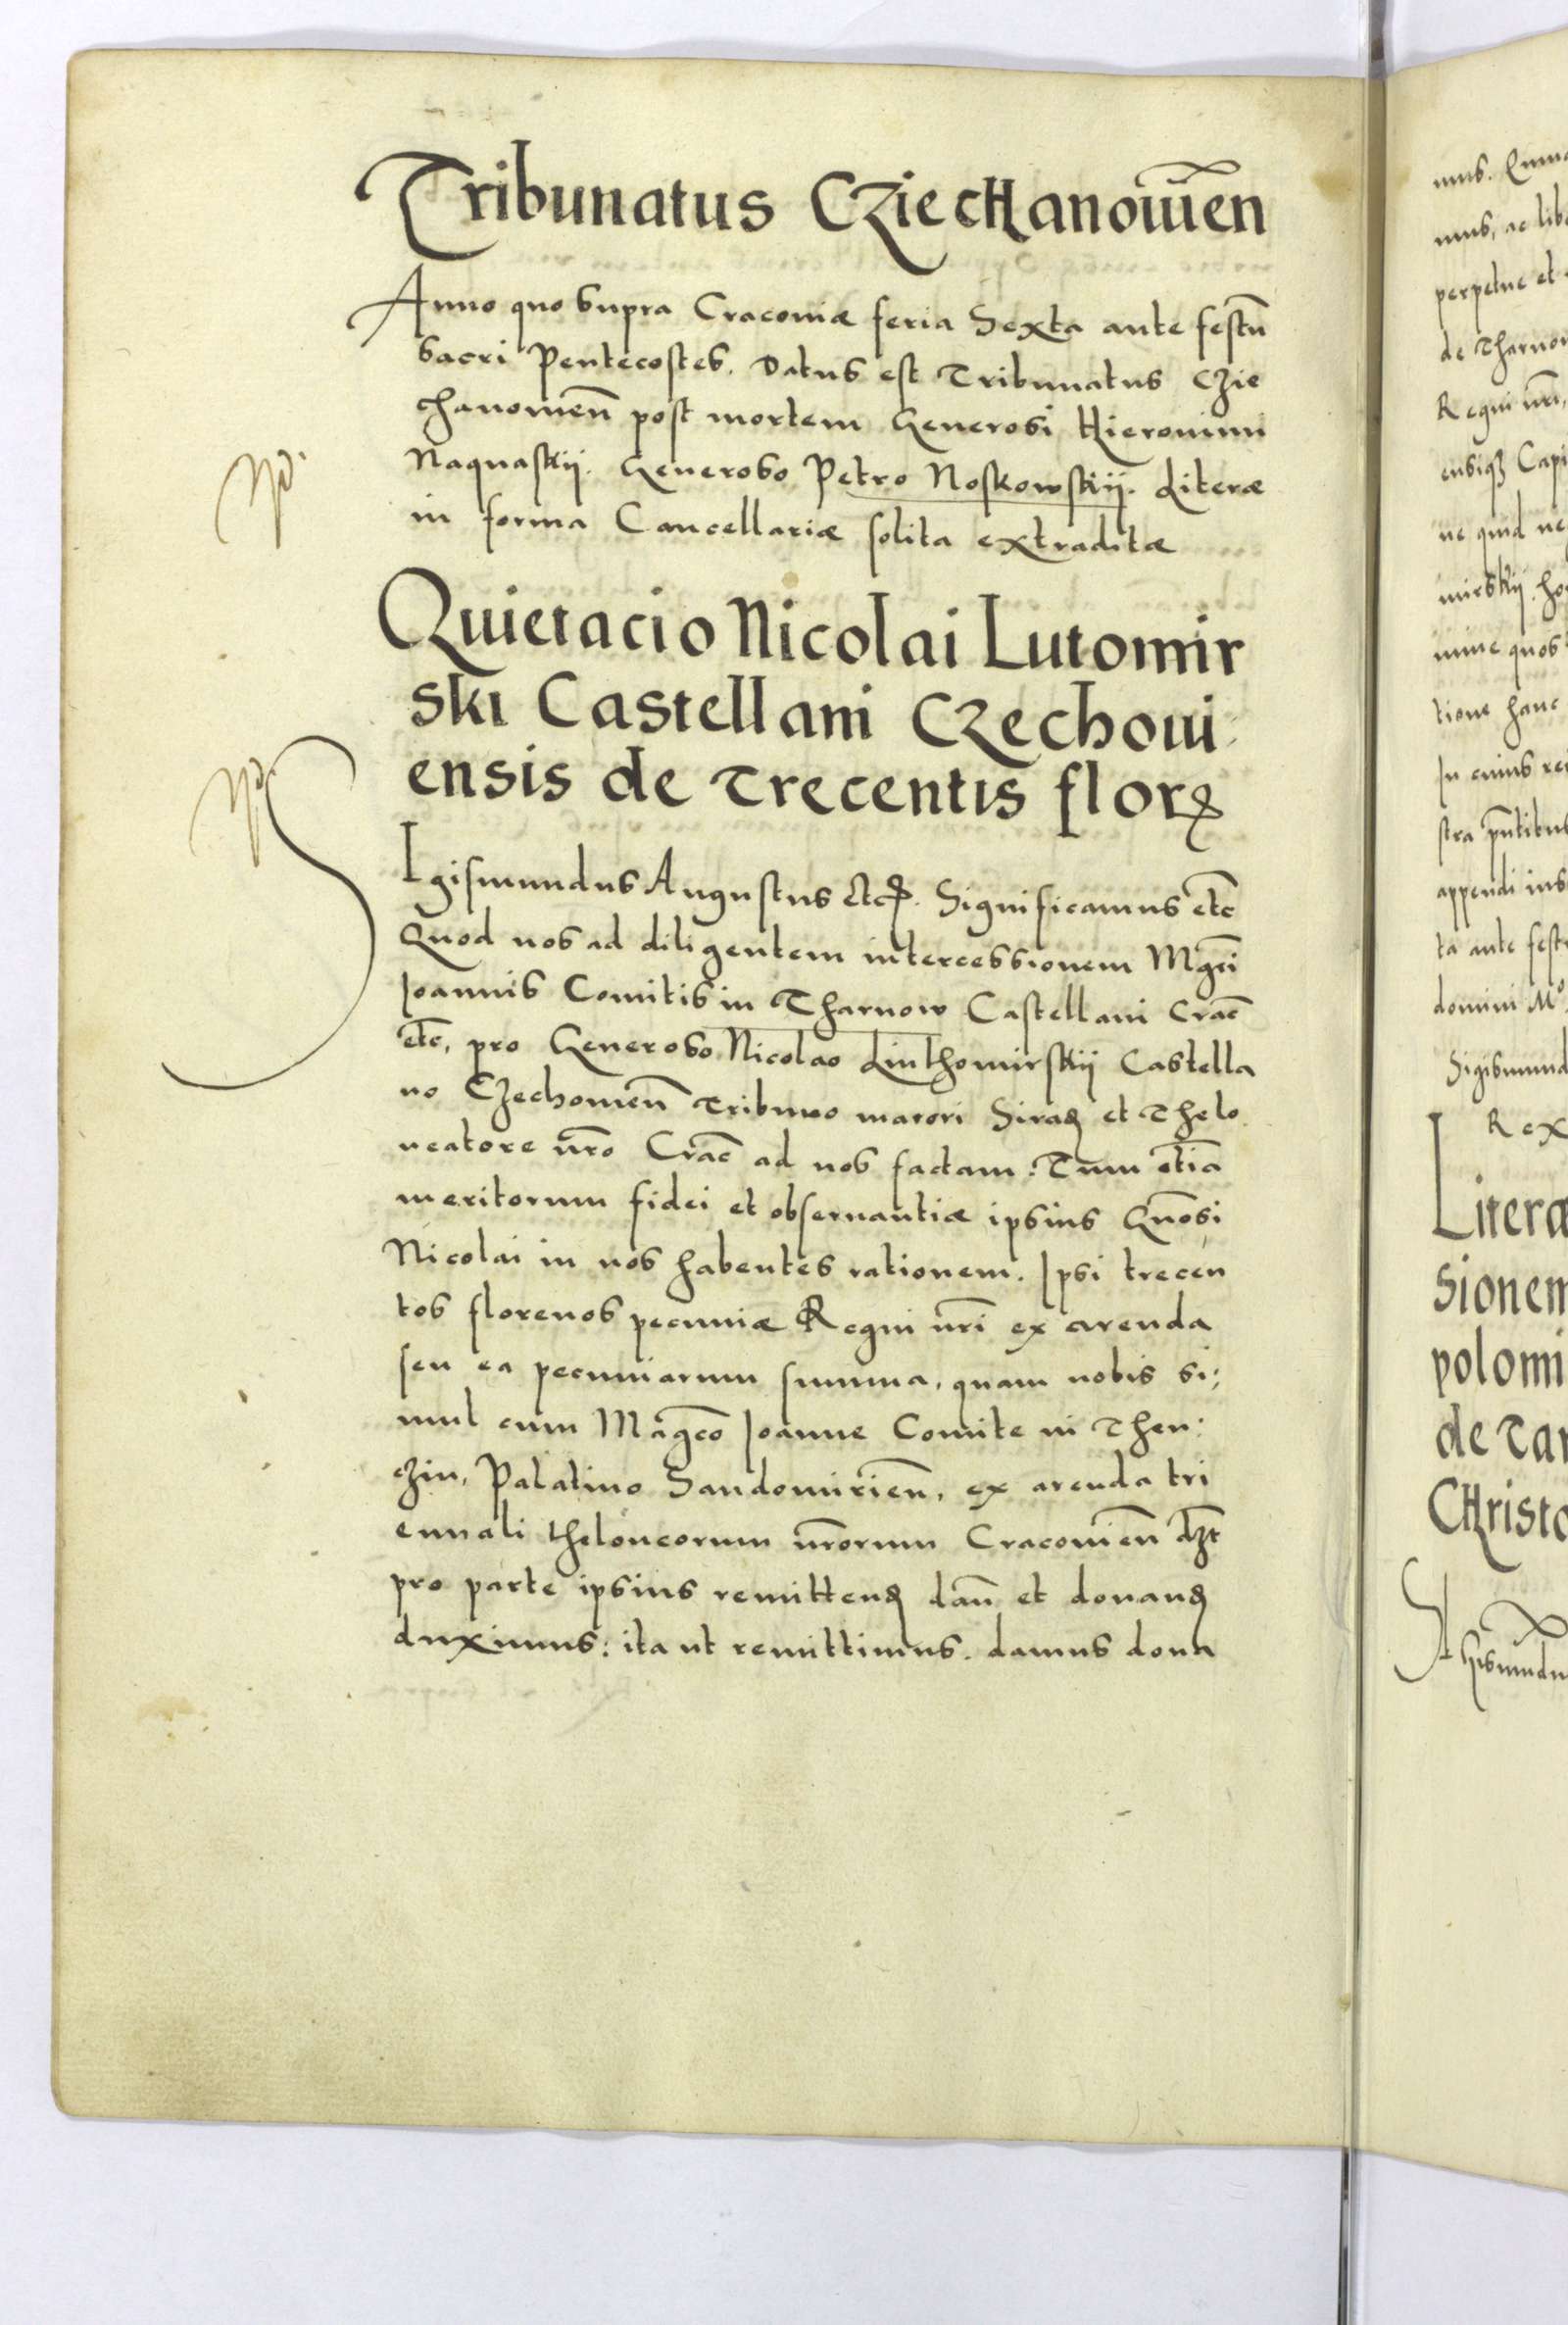 Tribunatus CZiecHanowien̄
Anno quo supra Cracoviæ feria Sexta ante festū
sacri Pentecostes. Datus est Tribunatus Czie
chanovien̄ post mortem Generosi Hieronimi
Naquaskij. Generoso Petro Noskowskij. Literæ
in forma Cancellariæ solita extraditæ
Quietacio Nicolai Lutomir
ski Castellani CZechovi
ensis de trecentis florꝝ
SIgismundus Augustus etc. Significamus etc̄
Quod nos ad diligentem intercessionem Mgc̄i
Joannis Comitis in Tharnow Castellani Crac̄
etc̄, pro Generoso Nicolao Luthomirskij Castella
no Czechovien̄ Tribuno maiori Siradꝫ et Thelo
neatore nr̄o Crac̄ ad nos factam: Tum etiā
meritorum fidei et observantiæ ipsius Gn̄osi
Nicolai in nos habentes rationem. Ipsi trecen
tos florenos pecuniæ Regni nr̄i ex arenda
seu ea pecuniarum summa, quam nobis si:
mul cum Māgco Joanne Comite in Then:
czin, Palatino Sandomirien̄, ex arenda tri
ennali theloneorum nr̄orum Cracovien̄
pro parte ipsius remittendꝫ dan̄ et donandꝫ
duximus: ita ut remittimus. damus dona
mus.
perpetue et
Regni nr̄i,
ne quid
hanc
In cuius
appendi
ta ante
domini Mo
Rex
Litera
sionem
polomi
de Tar
CHristo